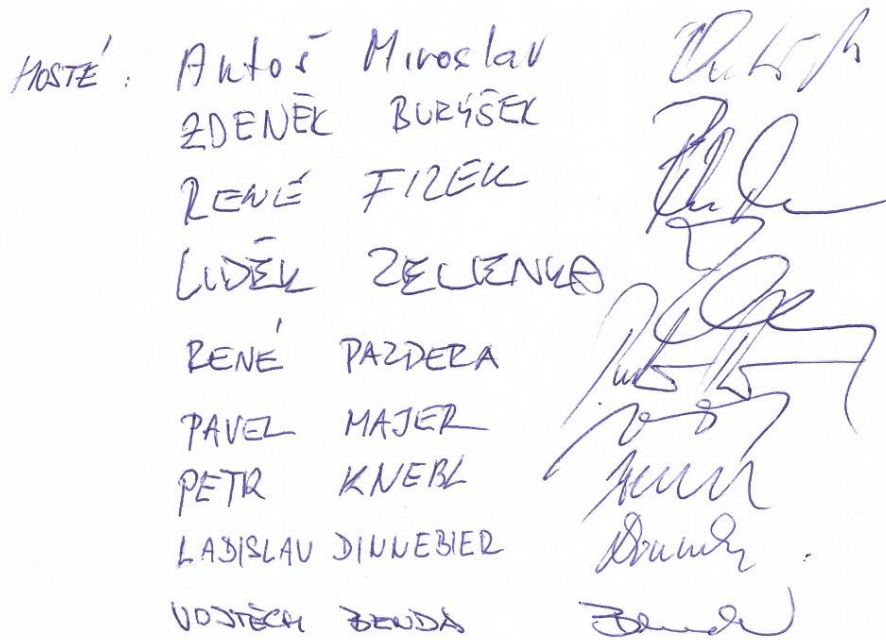 HOSTÉ: Antoš Miroslav
ZDENĚK BURÝŠEK
RENÉ FIZEK
LUDĚK ZELENKA
RENÉ PAZDERA
PAVEL MAJER
PETR KNEBL
LADISLAV DINNEBIER
VOJTĚCH BENDA